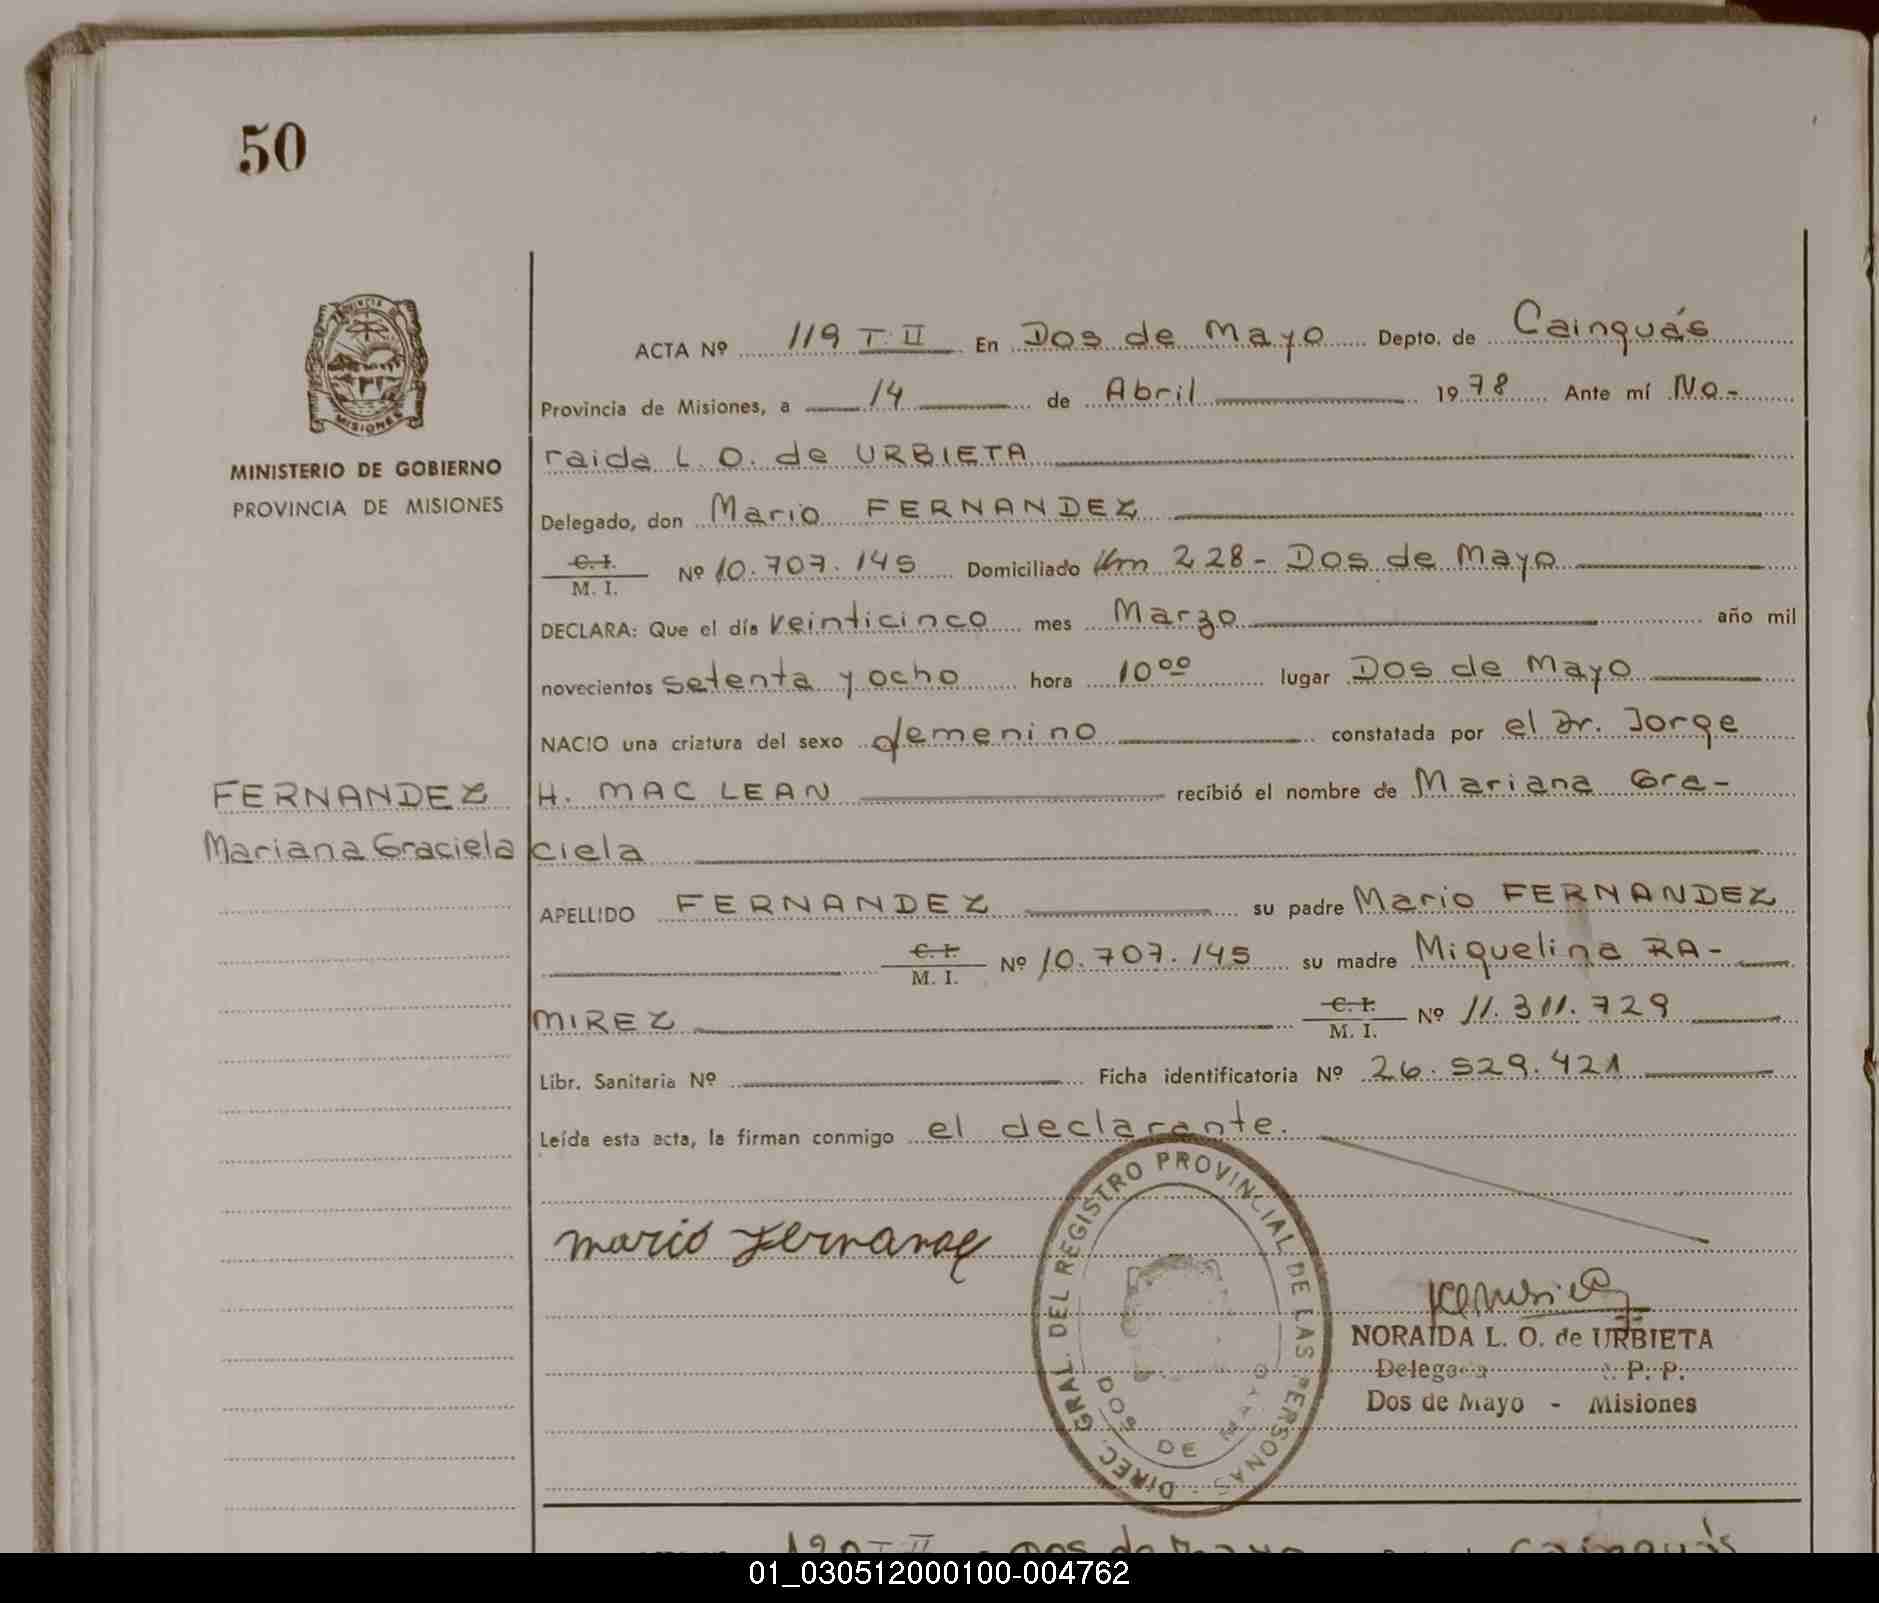 50
ACTA Nº 119 T. II En Dos de Mayo Depto. de Cainguás
Provincia de Misiones, a 14 de Abril 1978 Ante mí No-
raida L. O. de URBIETA
MINISTERIO DE GOBIERNO
PROVINCIA DE MISIONES
MISIONES
Delegado, don Mario FERNANDEZ
C. I.
M. I. Nº 10.707.145 Domiciliado Km 228 - Dos de Mayo
DECLARA: Que el día veinticinco mes Marzo año mil
novecientos setenta y ocho hora 10⁰⁰ lugar Dos de Mayo
NACIO una criatura del sexo femenino constatada por el Dr. Jorge
FERNANDEZ H. MAC LEAN recibió el nombre de Mariana Gra-
Mariana Graciela ciela
APELLIDO FERNANDEZ su padre Mario FERNANDEZ
C. I.
M. I. Nº 10.707.145 su madre Miguelina RA-
MIREZ C. I.
M. I. Nº 11.311.729
Libr. Sanitaria Nº Ficha identificatoria Nº 26.529.421
Leída esta acta, la firman conmigo el declarante.
DIREC. GRAL. DEL REGISTRO PROVINCIAL DE LAS PERSONAS
DOS DE MAYO
Mario Fernandez
NORAIDA L. O. de URBIETA
Delegada P. P.
Dos de Mayo - Misiones
120 T. II Dos de Mayo Cainguás
01_030512000100-004762